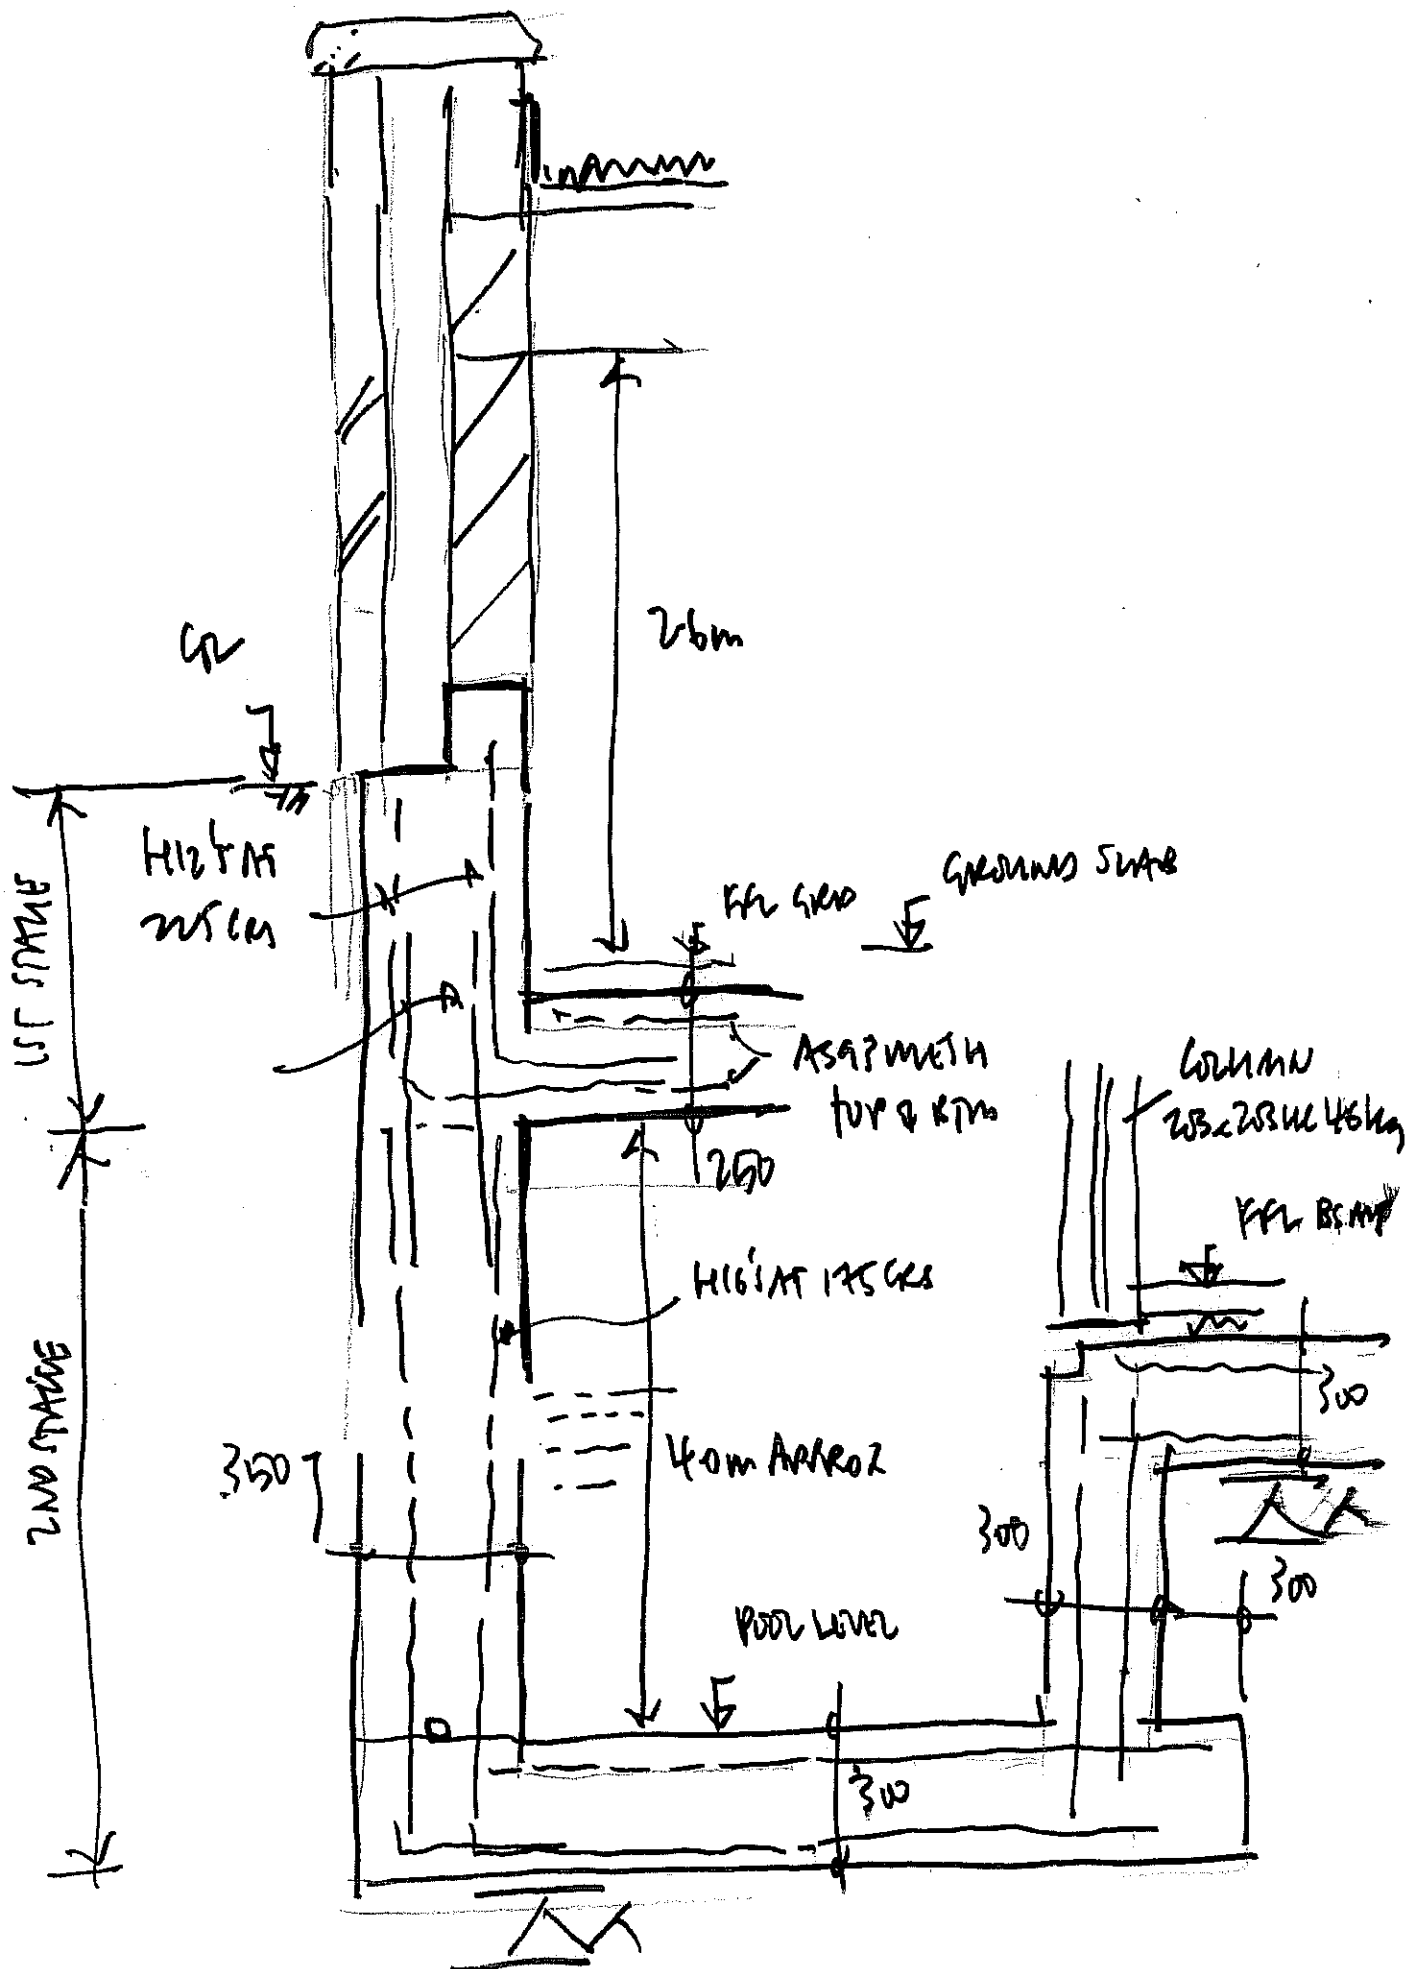 GL
2.6m
H12's AT
225 CRS
FFL GRD
GROUND SLAB
1ST STAGE
A393 MESH
TOP & BTM
COLUMN
203x203UC 46kg
250
FFL BSMT
H16's AT 175 CRS
2ND STAGE
350
4.0m APPROX
300
300
300
POOL LEVEL
300